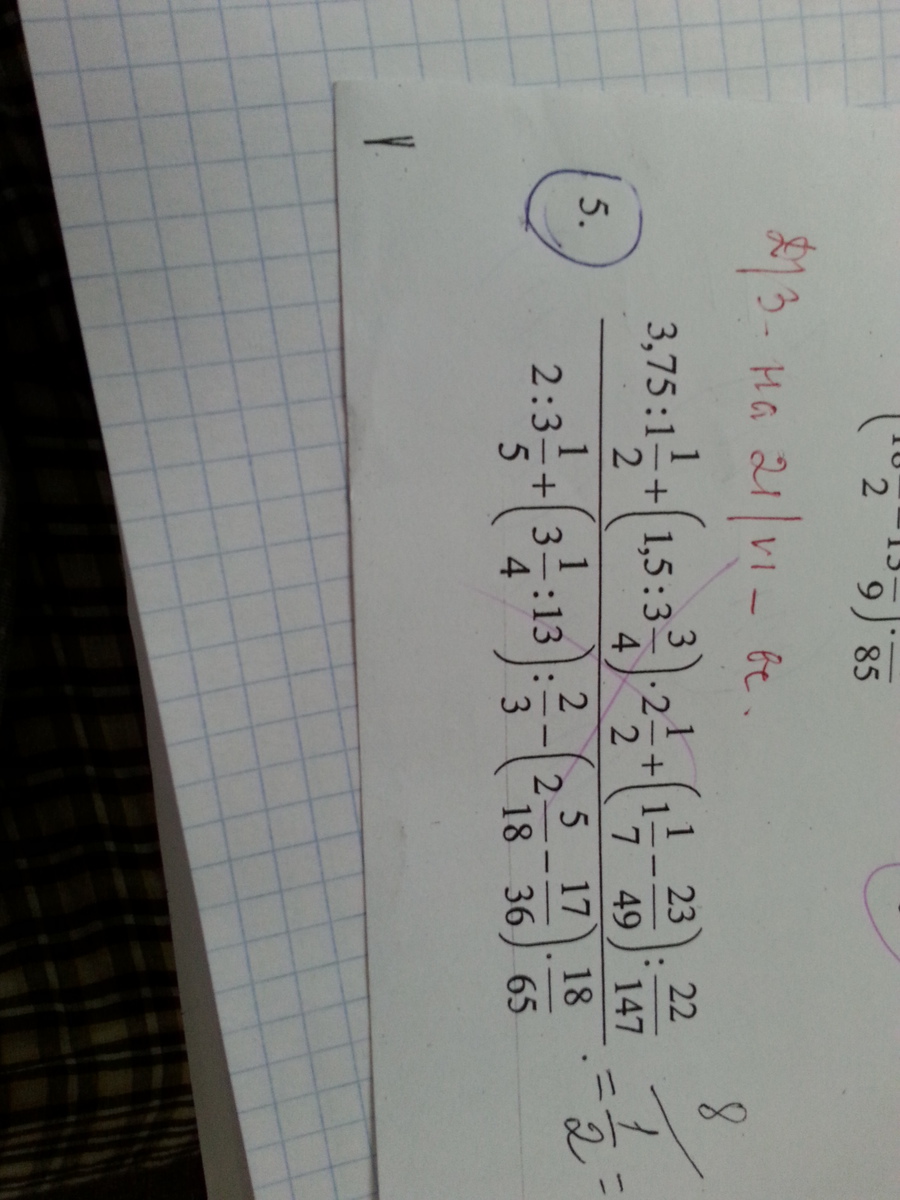 2 9 85
Д/З - на 21/VI - вс.
8
5. 3,75 : 1 1/2 + (1,5 : 3 3/4) · 2 1/2 + (1 1/7 − 23/49) : 22/147
2 : 3 1/5 + (3 1/4 : 13) : 2/3 − (2 5/18 − 17/36) · 18/65
. = 1/2 =